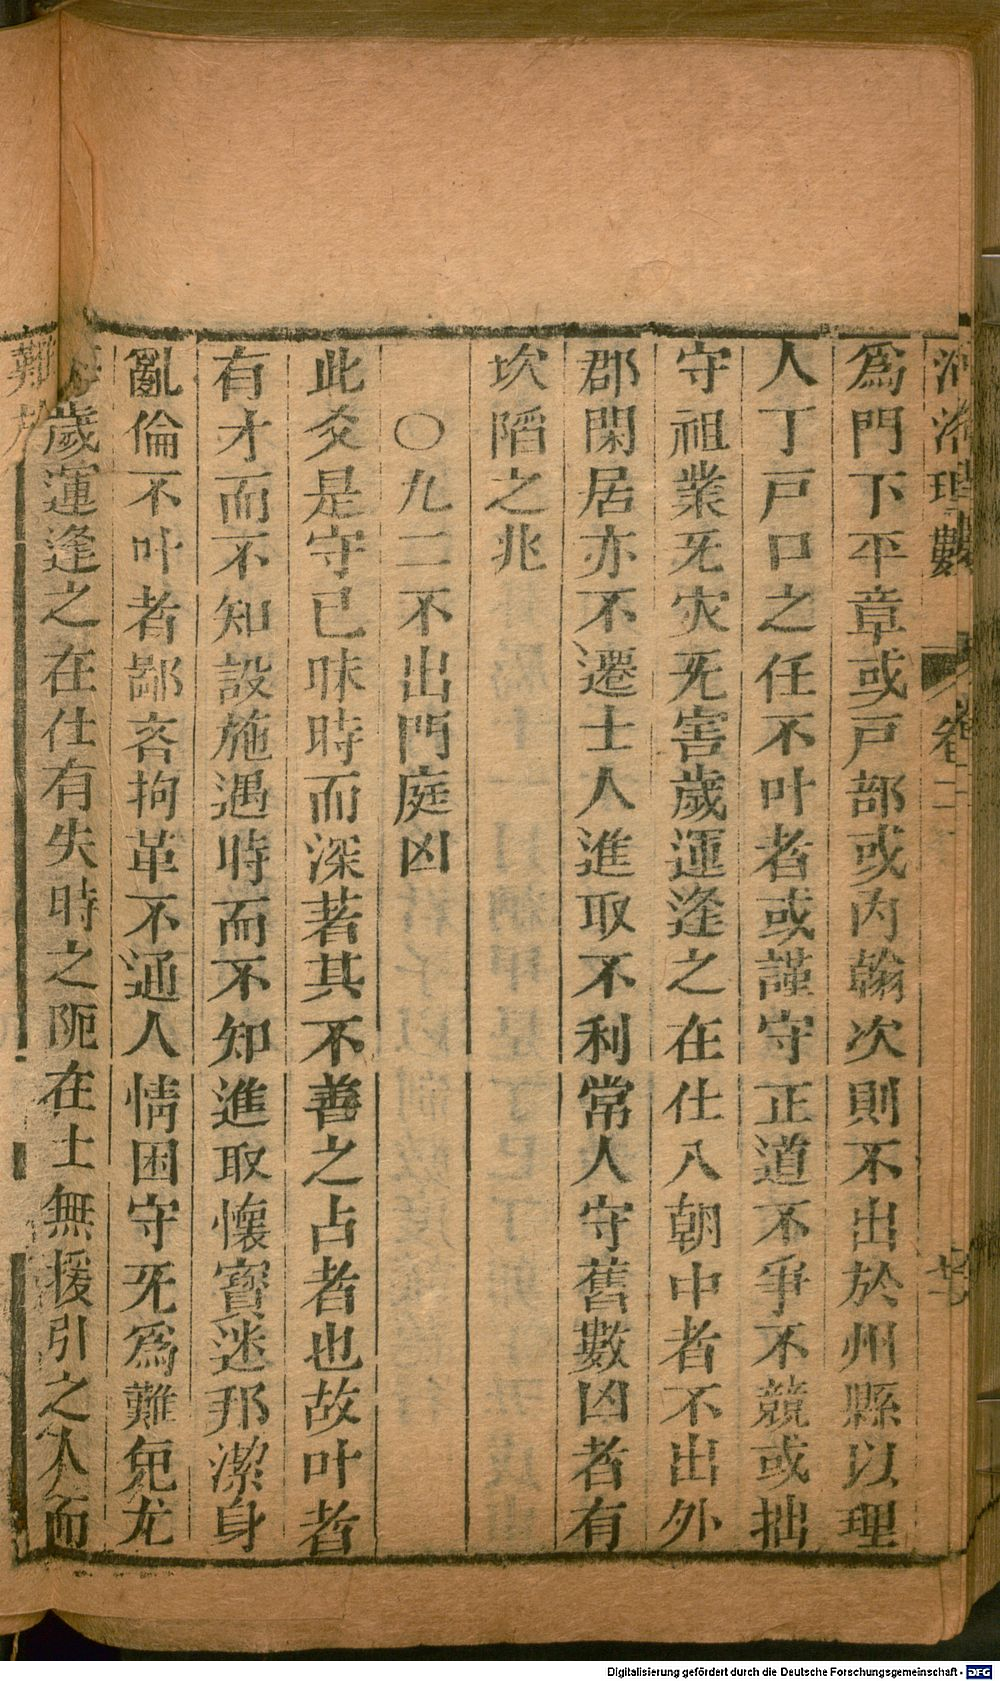 河洛理數 卷二
為門下平章或戸部或内翰次則不出於州縣以理
人丁戸口之任不叶者或謹守正道不爭不競或拙
守祖業旡灾旡害歲運逢之在仕八朝中者不出外
郡閑居亦不遷士人進取不利常人守舊數凶者有
坎陷之兆
〇九二不出門庭凶
此爻是守已昧時而深著其不善之占者也故叶者
有才而不知設施遇時而不知進取懷寳迷邦潔身
亂倫不叶者鄙吝拘革不通人情困守旡為難免尤
歲運逢之在仕有失時之阨在士無援引之人而
難
Digitalisierung gefördert durch die Deutsche Forschungsgemeinschaft - DFG